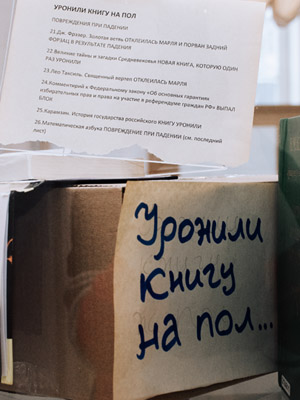 УРОНИЛИ КНИГУ НА ПОЛ
ПОВРЕЖДЕНИЯ ПРИ ПАДЕНИИ
21.Дж. Фрэзер. Золотая ветвь ОТКЛЕИЛАСЬ МАРЛЯ И ПОРВАН ЗАДНИЙ
ФОРЗАЦ В РЕЗУЛЬТАТЕ ПАДЕНИЯ
22.Великие тайны и загадки Средневековья НОВАЯ КНИГА, КОТОРУЮ ОДИН
РАЗ УРОНИЛИ
23.Лео Таксиль. Священный вертеп ОТКЛЕИЛАСЬ МАРЛЯ
24.Комментарий к Федеральному закону «Об основных гарантиях
избирательных прав и права на участие в референдуме граждан РФ» ВЫПАЛ
БЛОК
25.Карамзин. История государства российского КНИГУ УРОНИЛИ
26.Математическая азбука ПОВРЕЖДЕНИЕ ПРИ ПАДЕНИИ (см. последний
лист)
Уронили
книгу
на пол...